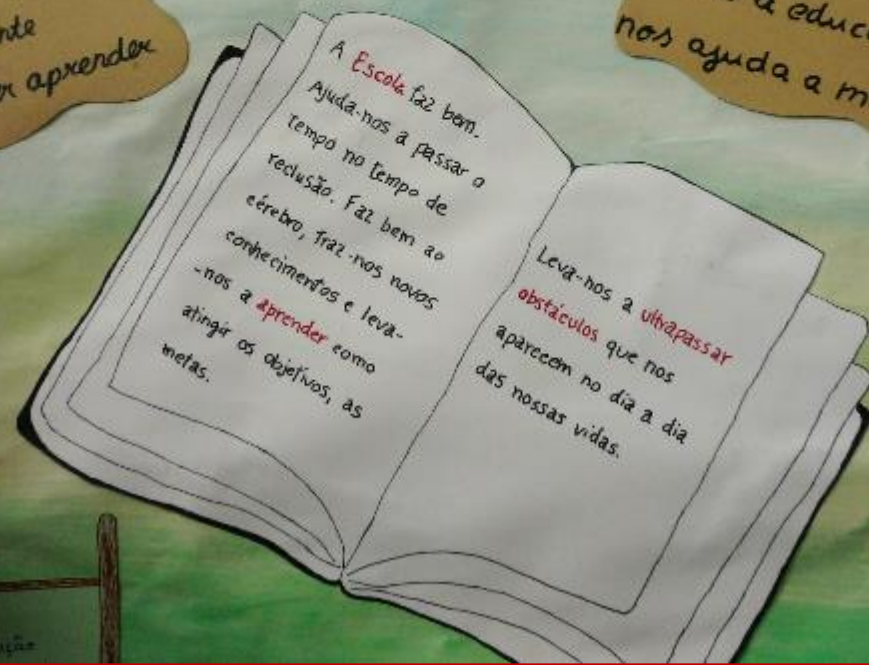 nte
r aprender
a educ
nos ajuda a m
A Escola faz bem.
Ajuda-nos a passar o
tempo no tempo de
reclusão. Faz bem ao
cérebro, Traz-nos novos
conhecimentos e leva-
-nos a aprender como
atingir os objetivos, as
metas.
Leva-nos a ultrapassar
obstáculos que nos
aparecem no dia a dia
das nossas vidas.
ação